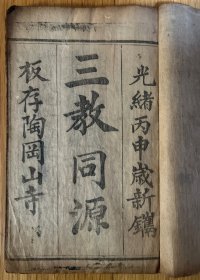 光緒丙申歲新鐫
三教同源
板存陶岡山寺